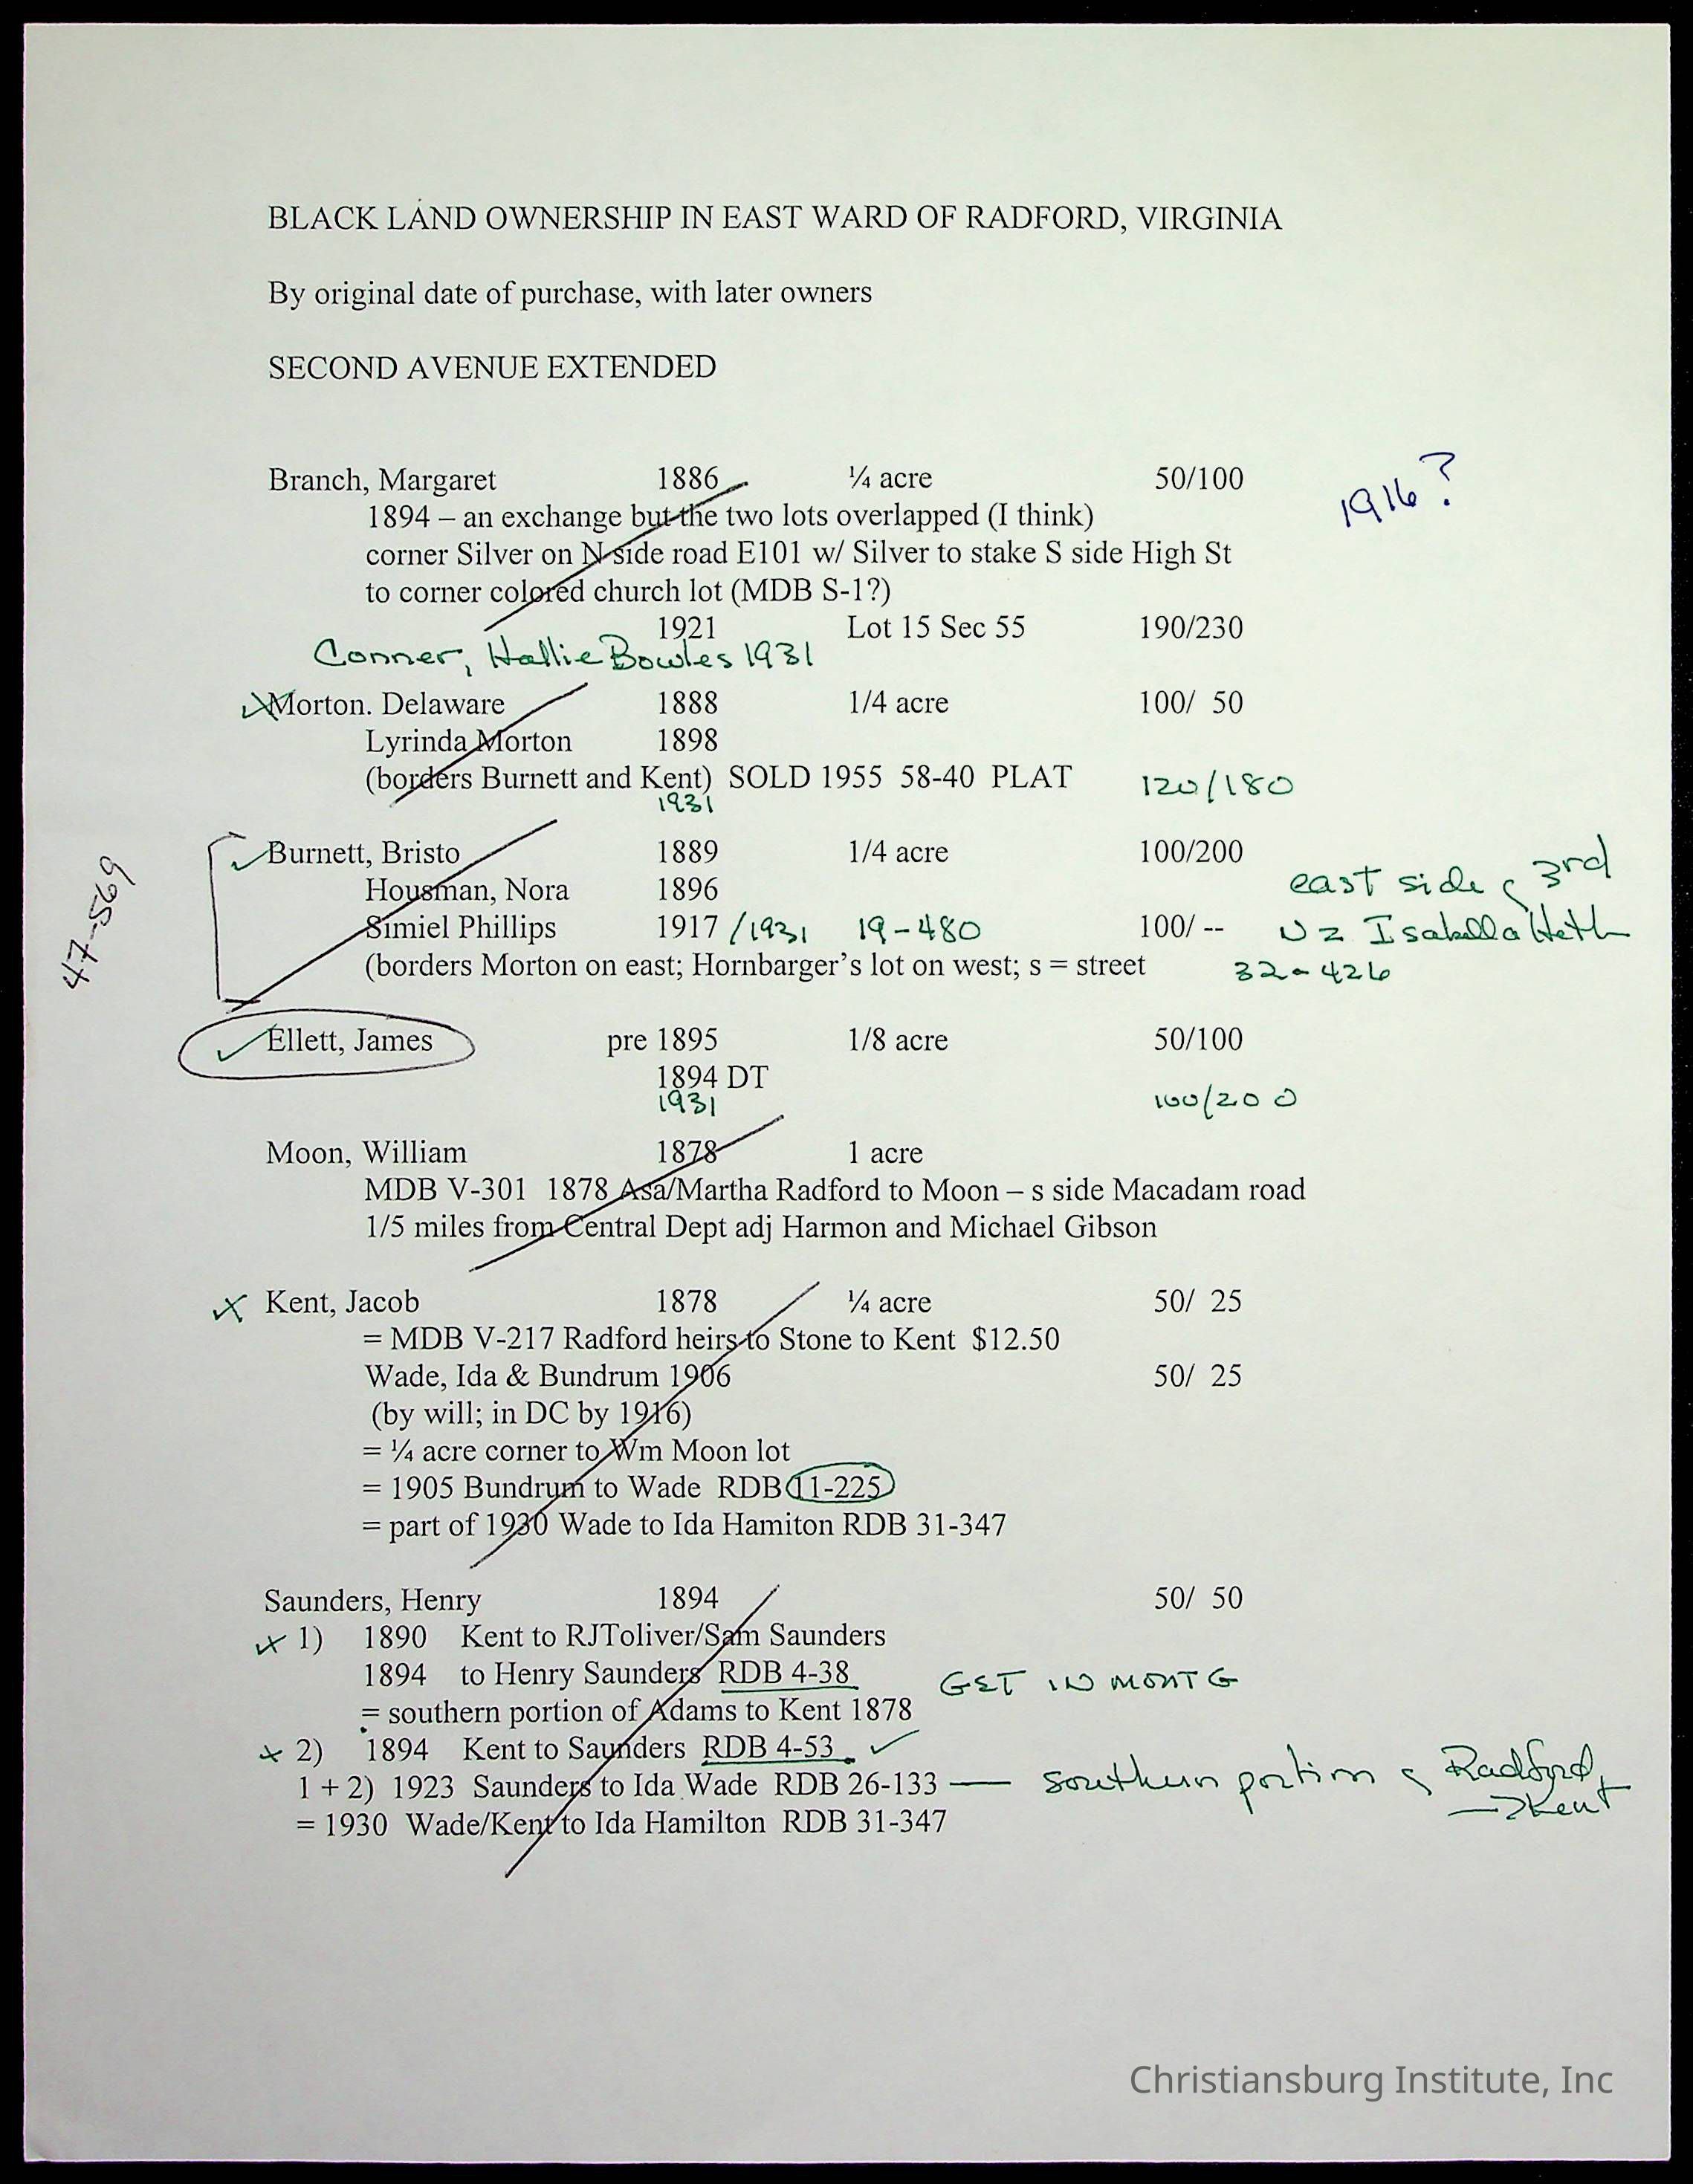 BLACK LAND OWNERSHIP IN EAST WARD OF RADFORD, VIRGINIA
By original date of purchase, with later owners
SECOND AVENUE EXTENDED
Branch, Margaret 1886 ¼ acre 50/100 1916?
1894 – an exchange but the two lots overlapped (I think)
corner Silver on N side road E101 w/ Silver to stake S side High St
to corner colored church lot (MDB S-1?)
1921 Lot 15 Sec 55 190/230
Conner, Hallie Bowles 1931
Morton. Delaware 1888 1/4 acre 100/ 50
Lyrinda Morton 1898
(borders Burnett and Kent) SOLD 1955 58-40 PLAT 120/180
1931
47-569
Burnett, Bristo 1889 1/4 acre 100/200
Housman, Nora 1896 east side 3rd
Simiel Phillips 1917 /1931 19-480 100/ -- Isabella Heth
(borders Morton on east; Hornbarger's lot on west; s = street 32-426
Ellett, James pre 1895 1/8 acre 50/100
1894 DT
1931 100/200
Moon, William 1878 1 acre
MDB V-301 1878 Asa/Martha Radford to Moon – s side Macadam road
1/5 miles from Central Dept adj Harmon and Michael Gibson
Kent, Jacob 1878 ¼ acre 50/ 25
= MDB V-217 Radford heirs to Stone to Kent $12.50
Wade, Ida & Bundrum 1906 50/ 25
(by will; in DC by 1916)
= ¼ acre corner to Wm Moon lot
= 1905 Bundrum to Wade RDB 11-225
= part of 1930 Wade to Ida Hamiton RDB 31-347
Saunders, Henry 1894 50/ 50
1) 1890 Kent to RJToliver/Sam Saunders
1894 to Henry Saunders RDB 4-38 GET IN MONTG
= southern portion of Adams to Kent 1878
2) 1894 Kent to Saunders RDB 4-53
1 + 2) 1923 Saunders to Ida Wade RDB 26-133 — southern portion Radford
→ Kent
= 1930 Wade/Kent to Ida Hamilton RDB 31-347
Christiansburg Institute, Inc